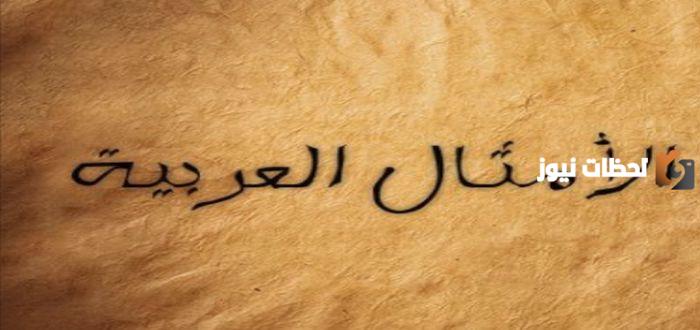 الأمثال العربية
لحظات نيوز